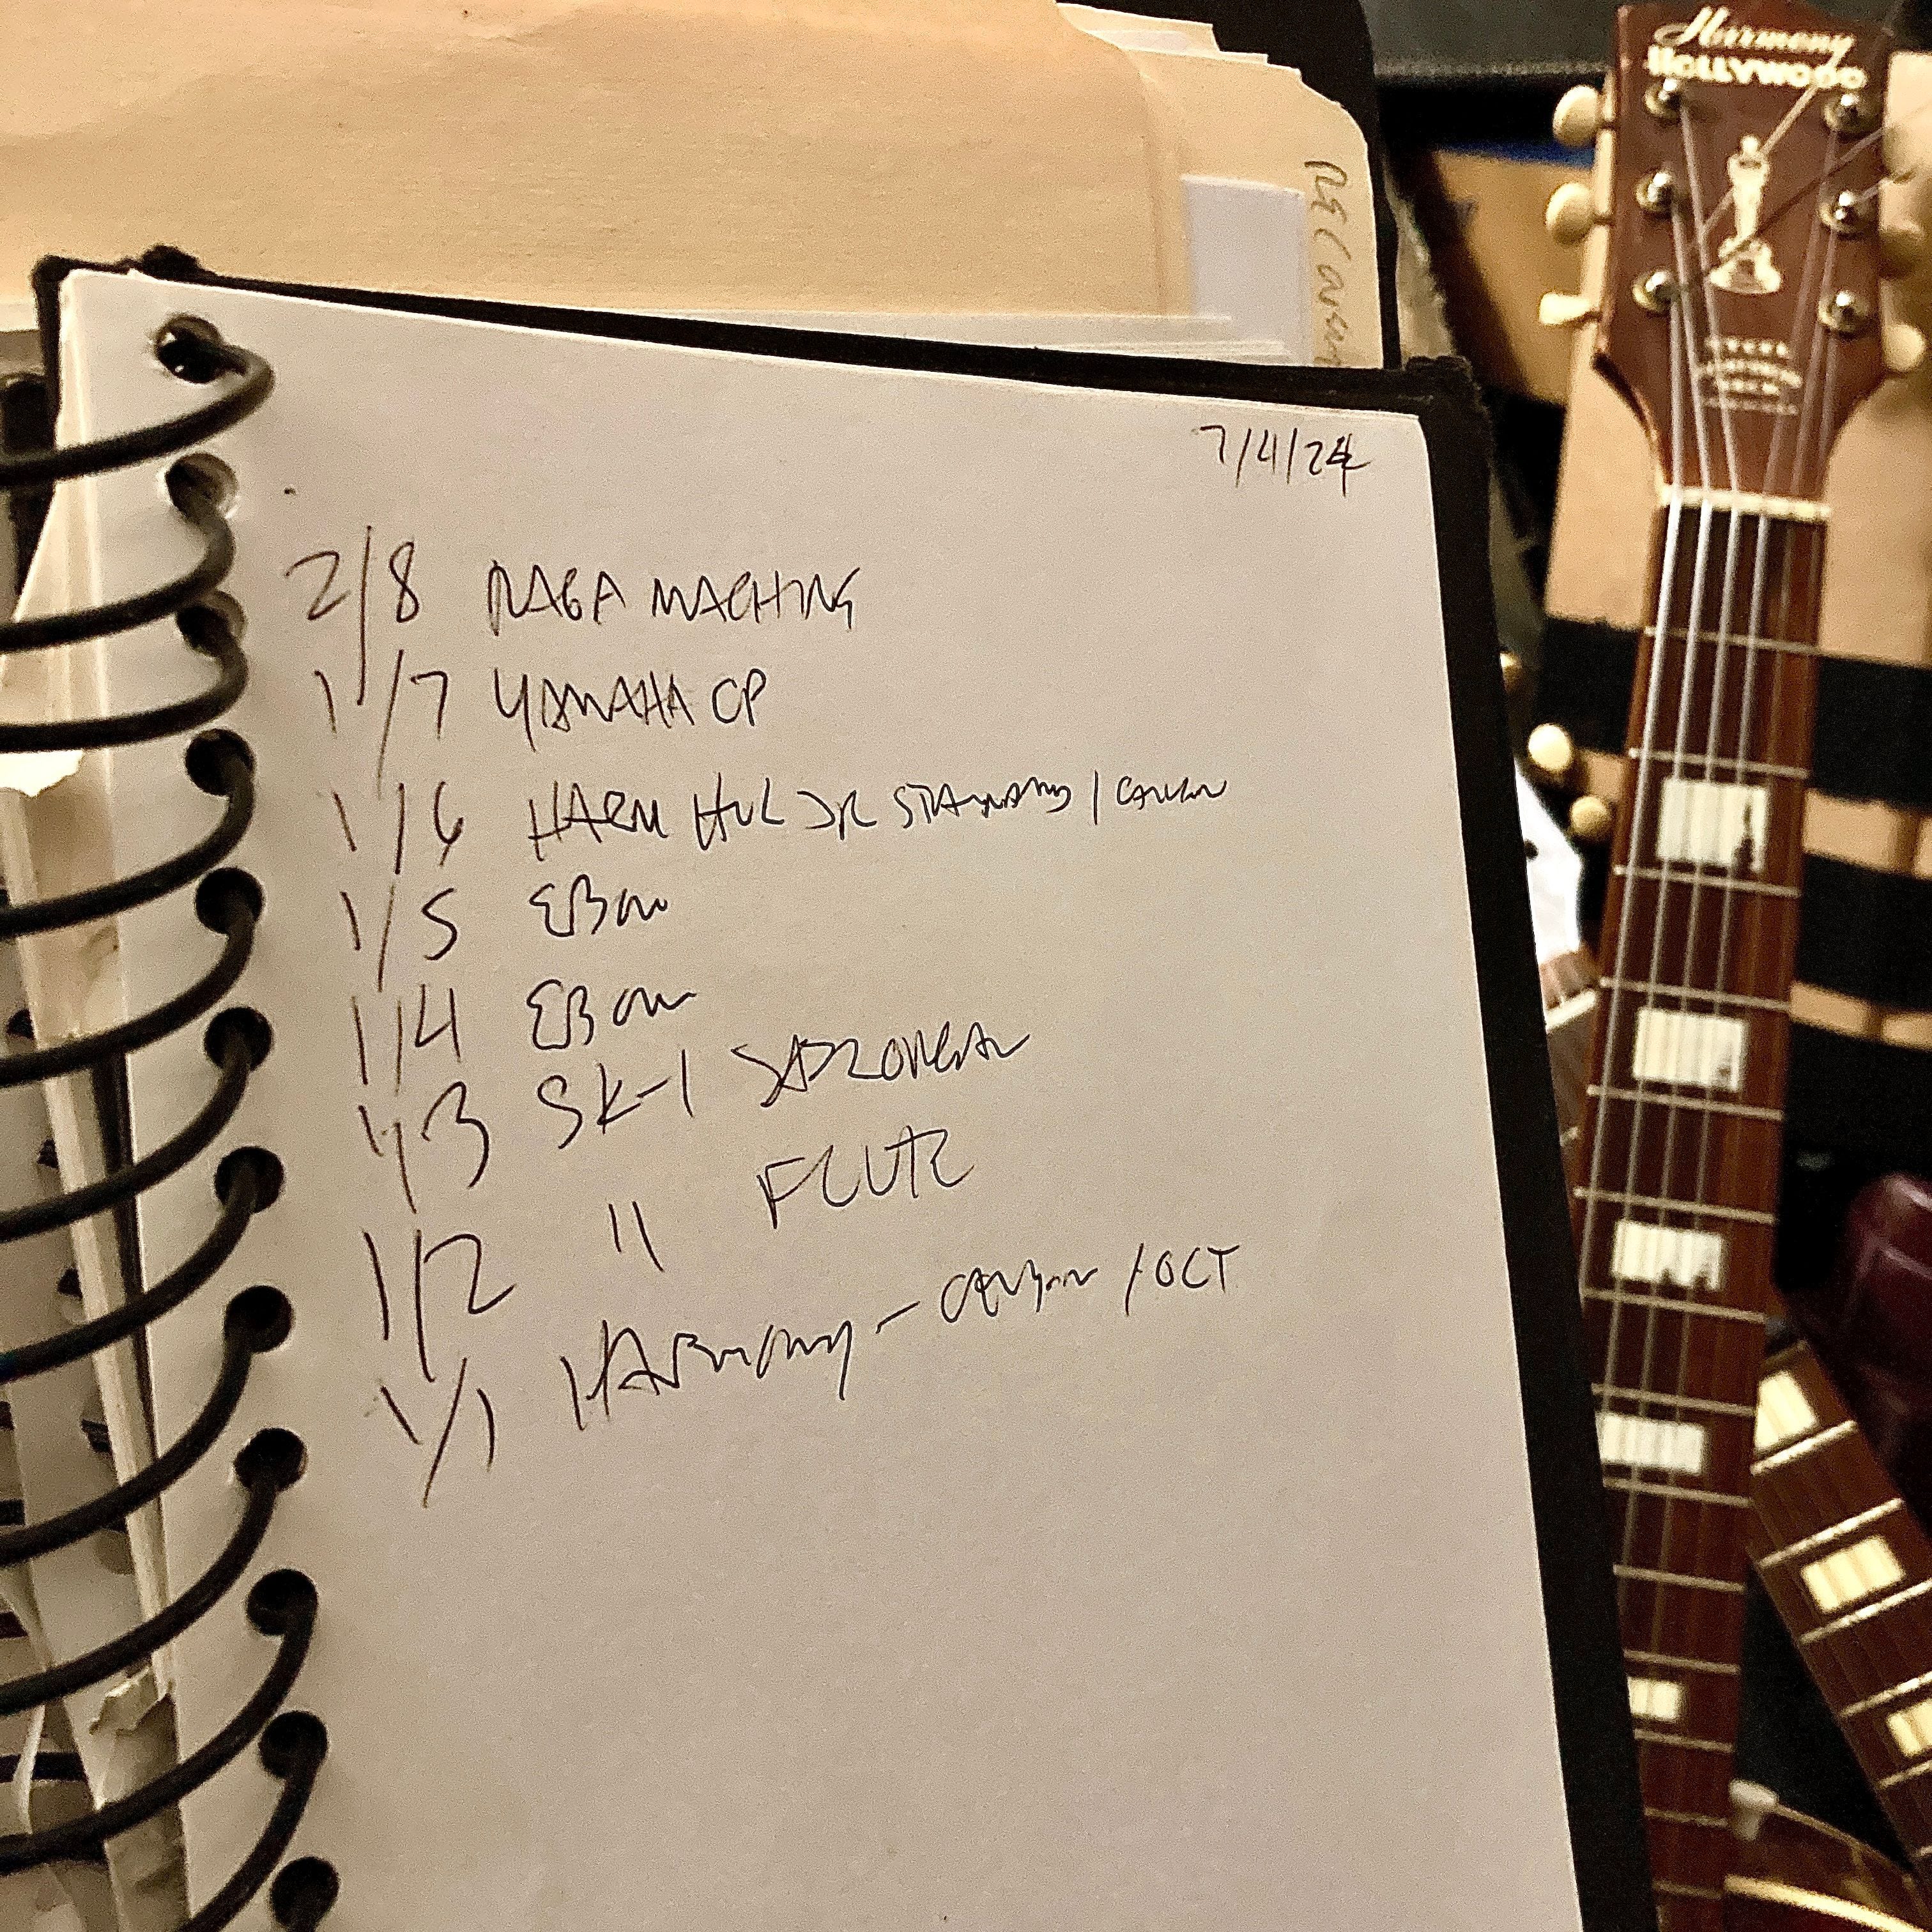 Harmony
HOLLYWOOD
7/4/24
2/8 RAGA MACHINE
1/7 YAMAHA CP
1/6 HARM HOL JR STANDARD /
1/5 EBOW
1/4 EBOW
1/3 SK-1
1/2 " FLUTE
1/1 HARMONY - /OCT